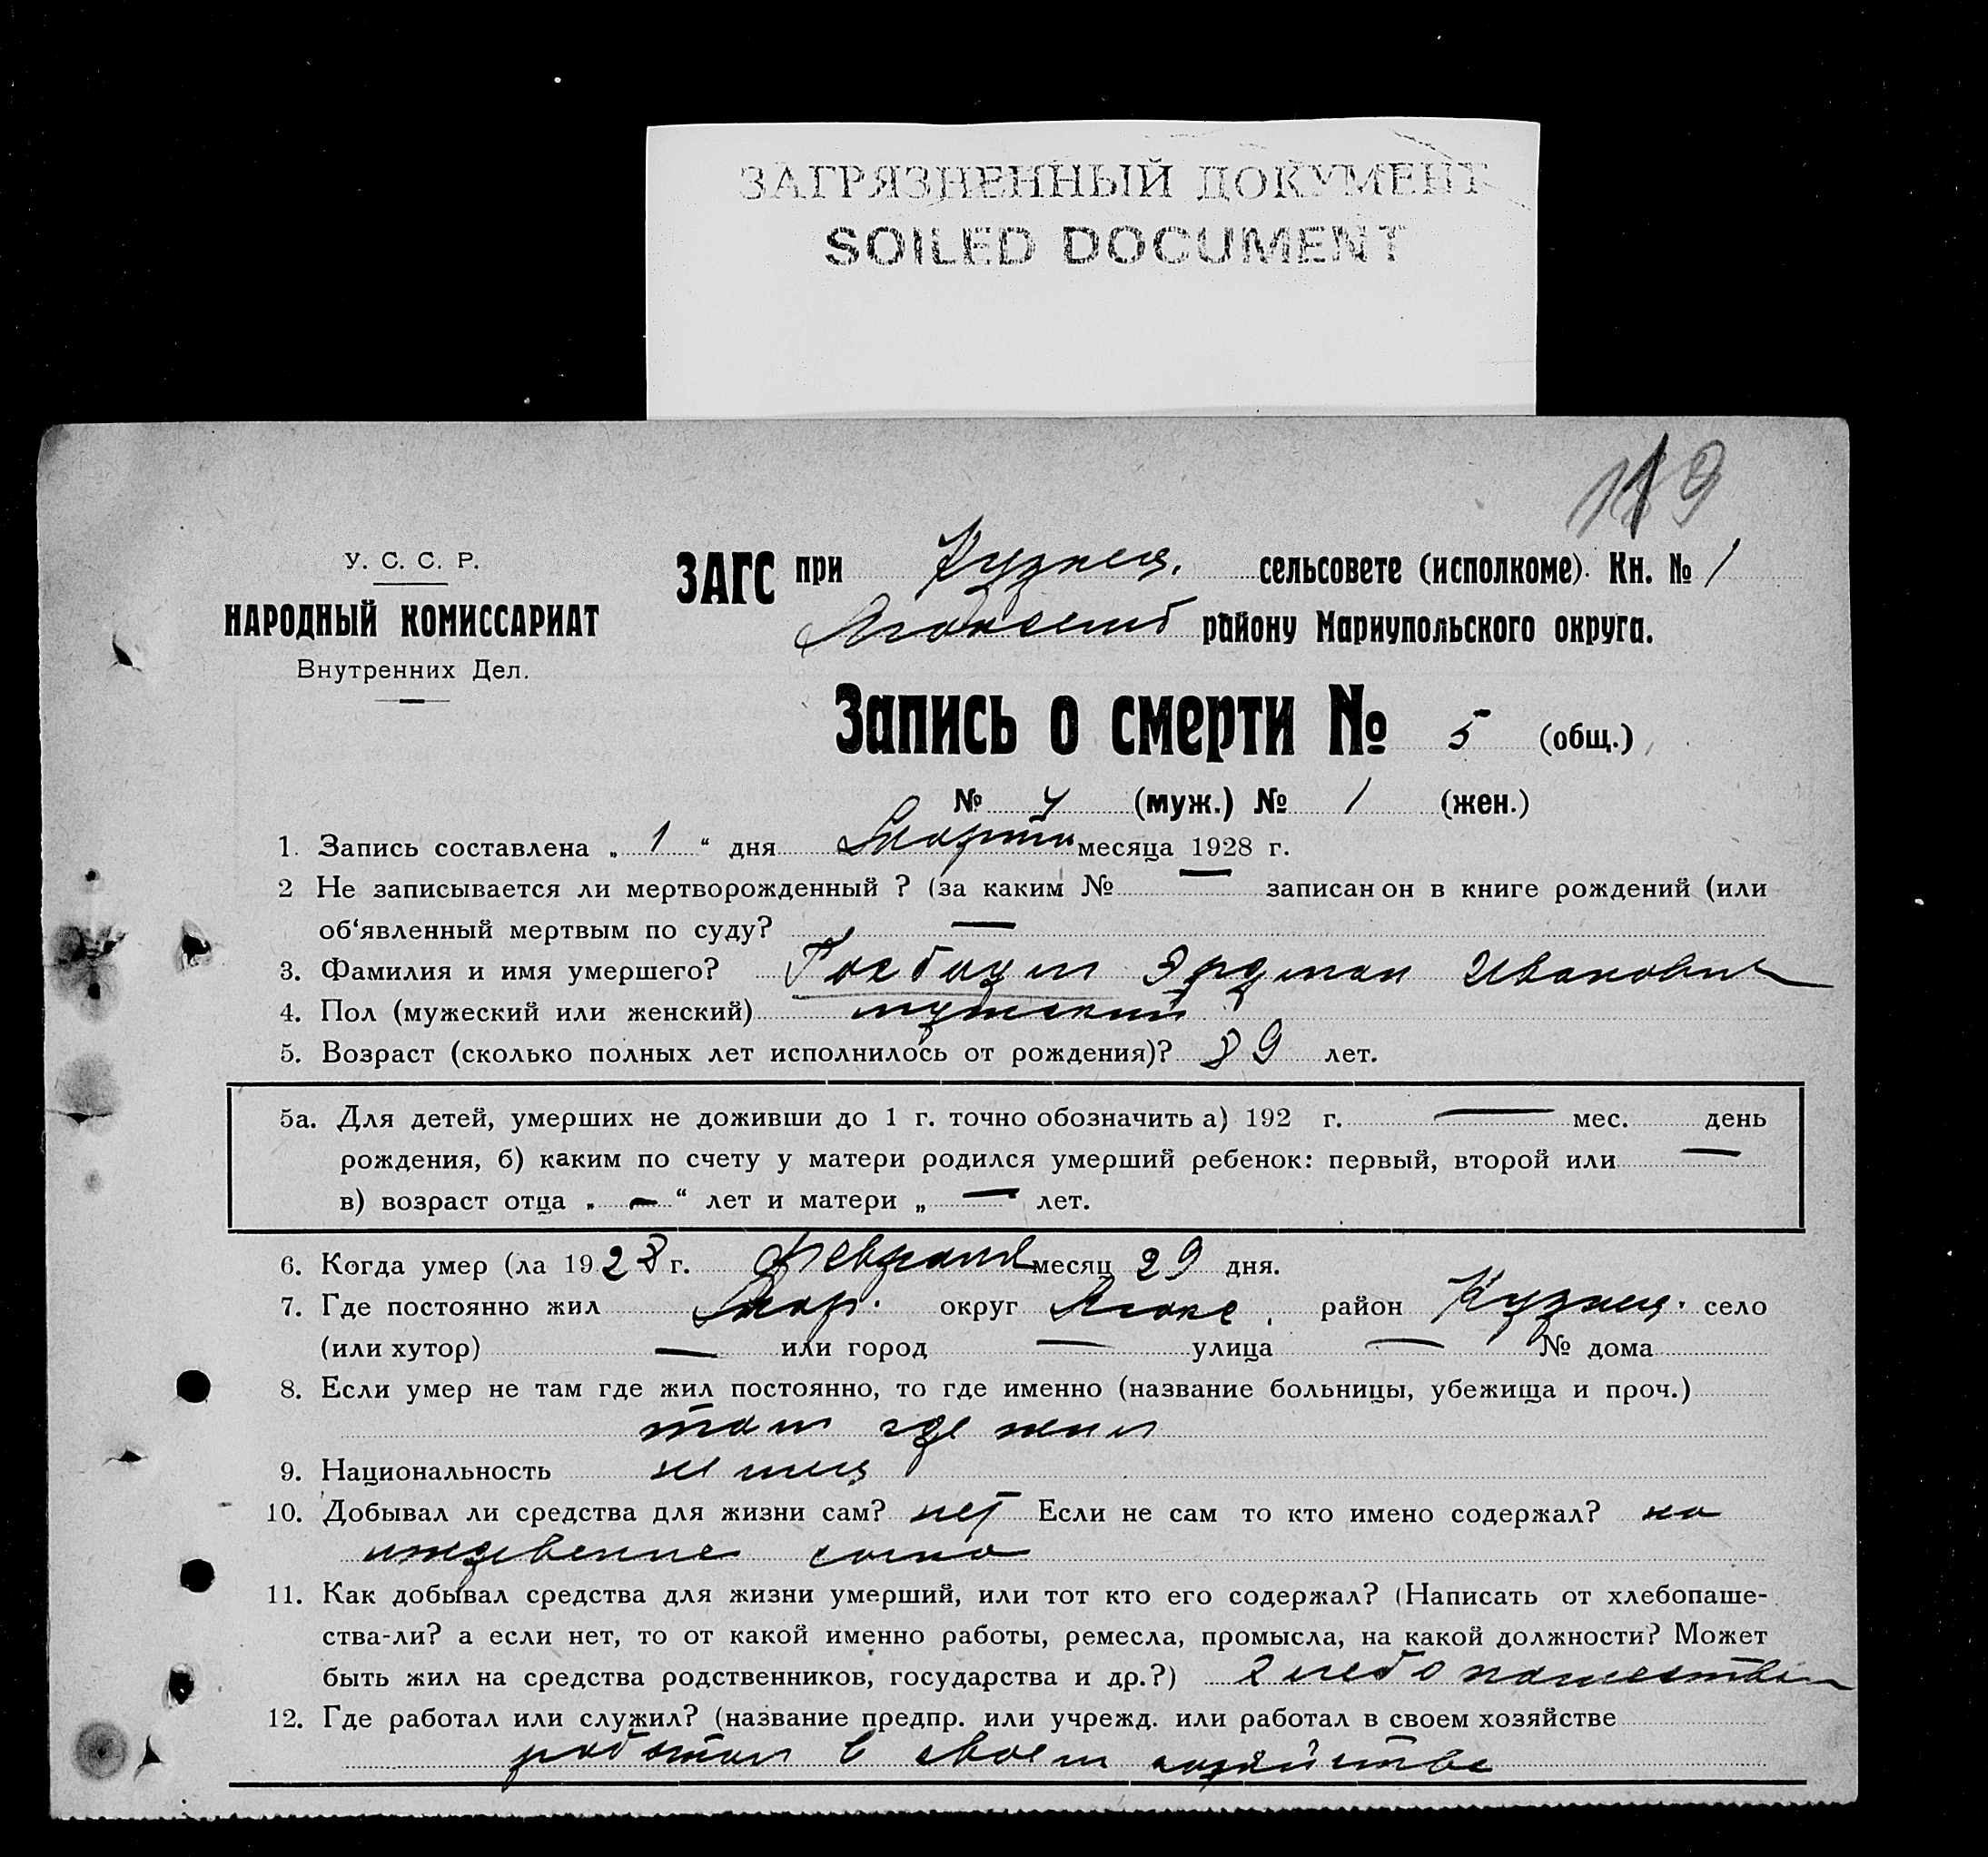 ЗАГРЯЗНЕННЫЙ ДОКУМЕНТ
SOILED DOCUMENT
У. С. С. Р.
НАРОДНЫЙ КОМИССАРИАТ
Внутренних Дел.
ЗАГС при Кузнец. сельсовете (исполкоме). Кн. № 1
району Мариупольского округа.
Запись о смерти № 5 (общ.)
№ 4 (муж.) № 1 (жен.)
1. Запись составлена „ 1 “ дня Марта месяца 1928 г.
2 Не записывается ли мертворожденный ? (за каким № — записан он в книге рождений (или
об‘явленный мертвым по суду? —
3. Фамилия и имя умершего? Эрдман Иванович
4. Пол (мужеский или женский) мужеский
5. Возраст (сколько полных лет исполнилось от рождения)? 89 лет.
5а. Для детей, умерших не доживши до 1 г. точно обозначить а) 192 г. — мес. день
рождения, б) каким по счету у матери родился умерший ребенок: первый, второй или —
в) возраст отца „ — “ лет и матери „ — лет.
6. Когда умер (ла 1928 г. Февраля месяц 29 дня.
7. Где постоянно жил Мар. округ район Кузнец. село
(или хутор) — или город — улица — № дома
8. Если умер не там где жил постоянно, то где именно (название больницы, убежища и проч.)
там где жил
9. Национальность немец
10. Добывал ли средства для жизни сам? нет Если не сам то кто имено содержал? на
иждвение сына
11. Как добывал средства для жизни умерший, или тот кто его содержал? (Написать от хлебопаше-
ства-ли? а если нет, то от какой именно работы, ремесла, промысла, на какой должности? Может
быть жил на средства родственников, государства и др.?) хлебопашества
12. Где работал или служил? (название предпр. или учрежд. или работал в своем хозяйстве
работал в своем хозяйстве